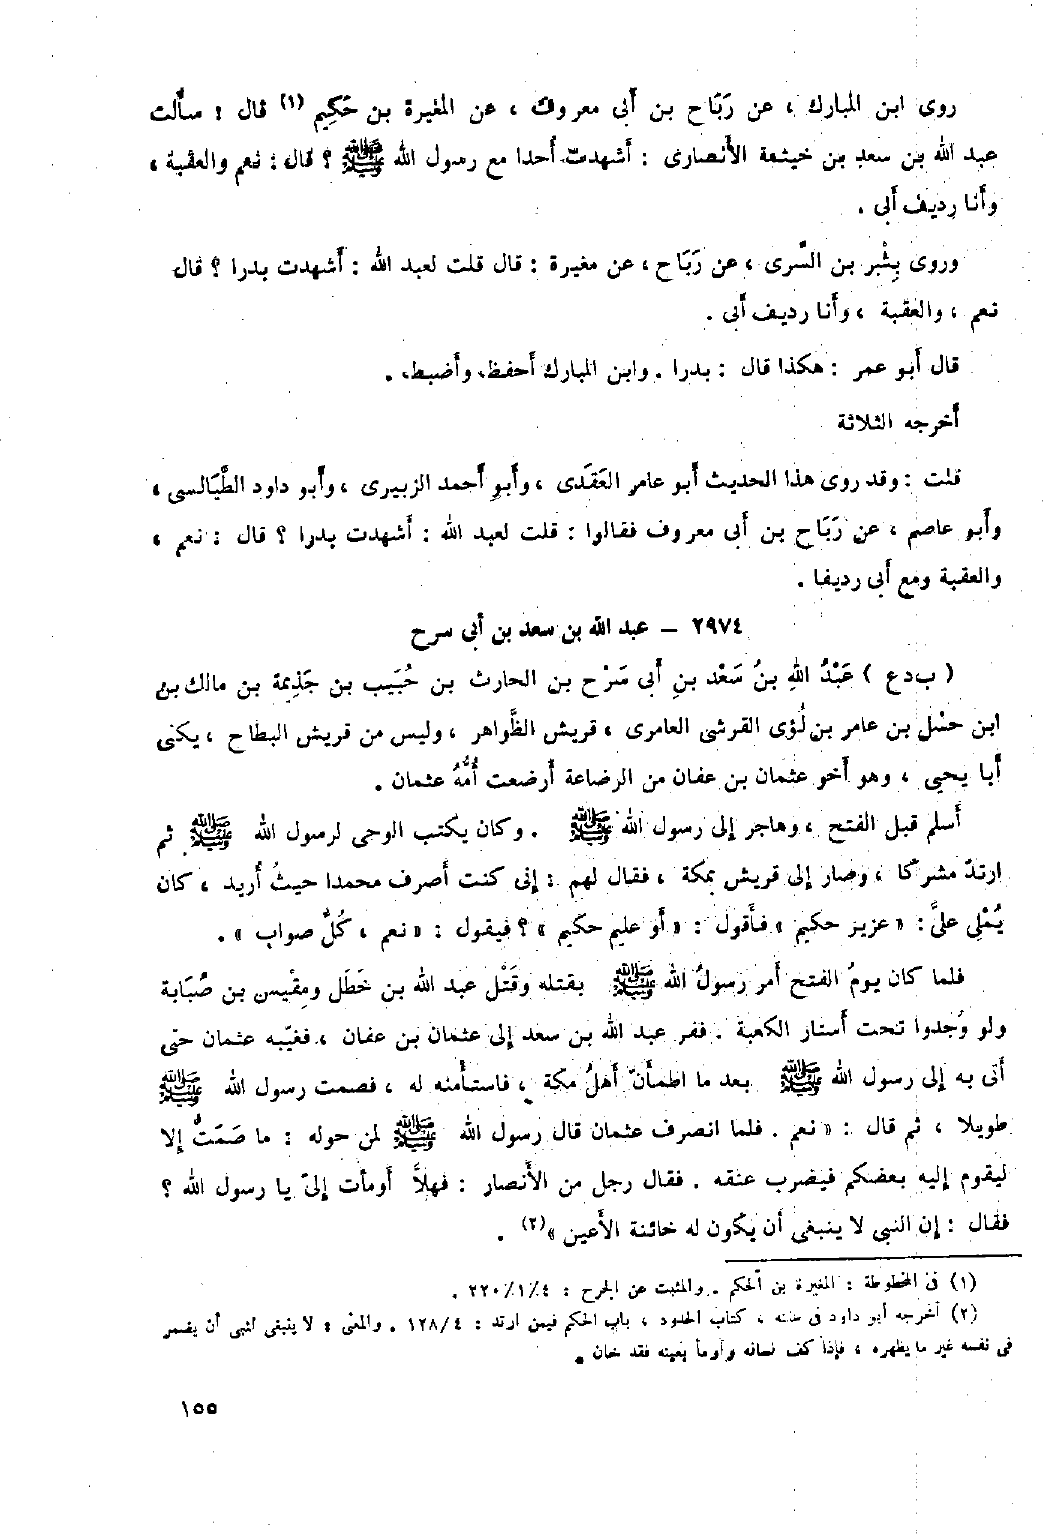 روى ابن المبارك ، عن رَبَاح بن أَبى معروف ، عن المغيرة بن حَكِيم (١) قال : سأَلت
عبد الله بن سعد بن خيثمة الأَنصارى : أَشهدت أُحدا مع رسول الله ﷺ ؟ قال : نعم والعقبة ،
وأَنا رديف أَبى .
وروى بِشْر بن السَّرى ، عن رَبَاح ، عن مغيرة : قال قلت لعبد الله : أَشهدت بدرا ؟ قال
نعم ، والعقبة ، وأَنا رديف أَبى .
قال أَبو عمر : هكذا قال : بدرا . وابن المبارك أَحفظ وأَضبط .
أَخرجه الثلاثة
قلت : وقد روى هذا الحديث أَبو عامر العَقَدى ، وأَبو أَحمد الزبيرى ، وأَبو داود الطَّيَالسى ،
وأَبو عاصم ، عن رَبَاح بن أَبى معروف فقالوا : قلت لعبد الله : أَشهدت بدرا ؟ قال : نعم ،
والعقبة ومع أَبى رديفا .
٢٩٧٤ – عبد الله بن سعد بن أبى سرح
( ب د ع ) عَبْدُ اللهِ بنُ سَعْد بنِ أَبى سَرْح بن الحارث بن حُبَيب بن جَذِيمة بن مالك بن
ابن حسْل بن عامر بن لُؤى القرشى العامرى ، قريش الظَّواهر ، وليس من قريش البطاح ، يكنى
أَبا يحيى ، وهو أَخو عثمان بن عفان من الرضاعة أَرضعت أُمُّهُ عثمان .
أَسلم قبل الفتح ، وهاجر إلى رسول الله ﷺ . وكان يكتب الوحى لرسول الله ﷺ ثم
ارتدّ مشركا ، وصار إلى قريش بمكة ، فقال لهم : إنى كنت أَصرف محمدا حيثُ أُريد ، كان
يُمْلِى علىَّ : « عزيز حكيم » فأَقول : « أَو عليم حكيم » ؟ فيقول : « نعم ، كُلٌّ صواب » .
فلما كان يومُ الفتح أَمر رسولُ الله ﷺ بقتله وقَتْل عبد الله بن خَطَل ومِقْيس بن صُبَابة
ولو وُجدوا تحت أَستار الكعبة . ففر عبد الله بن سعد إلى عثمان بن عفان ، فغيّبه عثمان حتى
أَتى به إلى رسول الله ﷺ بعد ما اطمأَنّ أَهلُ مكة ، فاستأْمنه له ، فصمت رسول الله ﷺ
طويلا ، ثم قال : « نعم . فلما انصرف عثمان قال رسول الله ﷺ لمن حوله : ما صَمَتُّ إلا
ليقوم إليه بعضكم فيضرب عنقه . فقال رجل من الأَنصار : فهلاَّ أَومأت إلىّ يا رسول الله ؟
فقال : إن النبى لا ينبغى أَن يكون له خائنة الأَعين » (٢) .
(١) فى المخطوطة : المغيرة بن الحكم . والمثبت عن الجرح : ٢٢٠/١/٤ .
(٢) أخرجه أبو داود فى سننه ، كتاب الحدود ، باب الحكم فيمن ارتد : ١٢٨/٤ . والمعنى : لا ينبغى لنبى أن يضمر
فى نفسه غير ما يظهره ، فإذا كف لسانه وأومأ بعينه فقد خان .
١٥٥